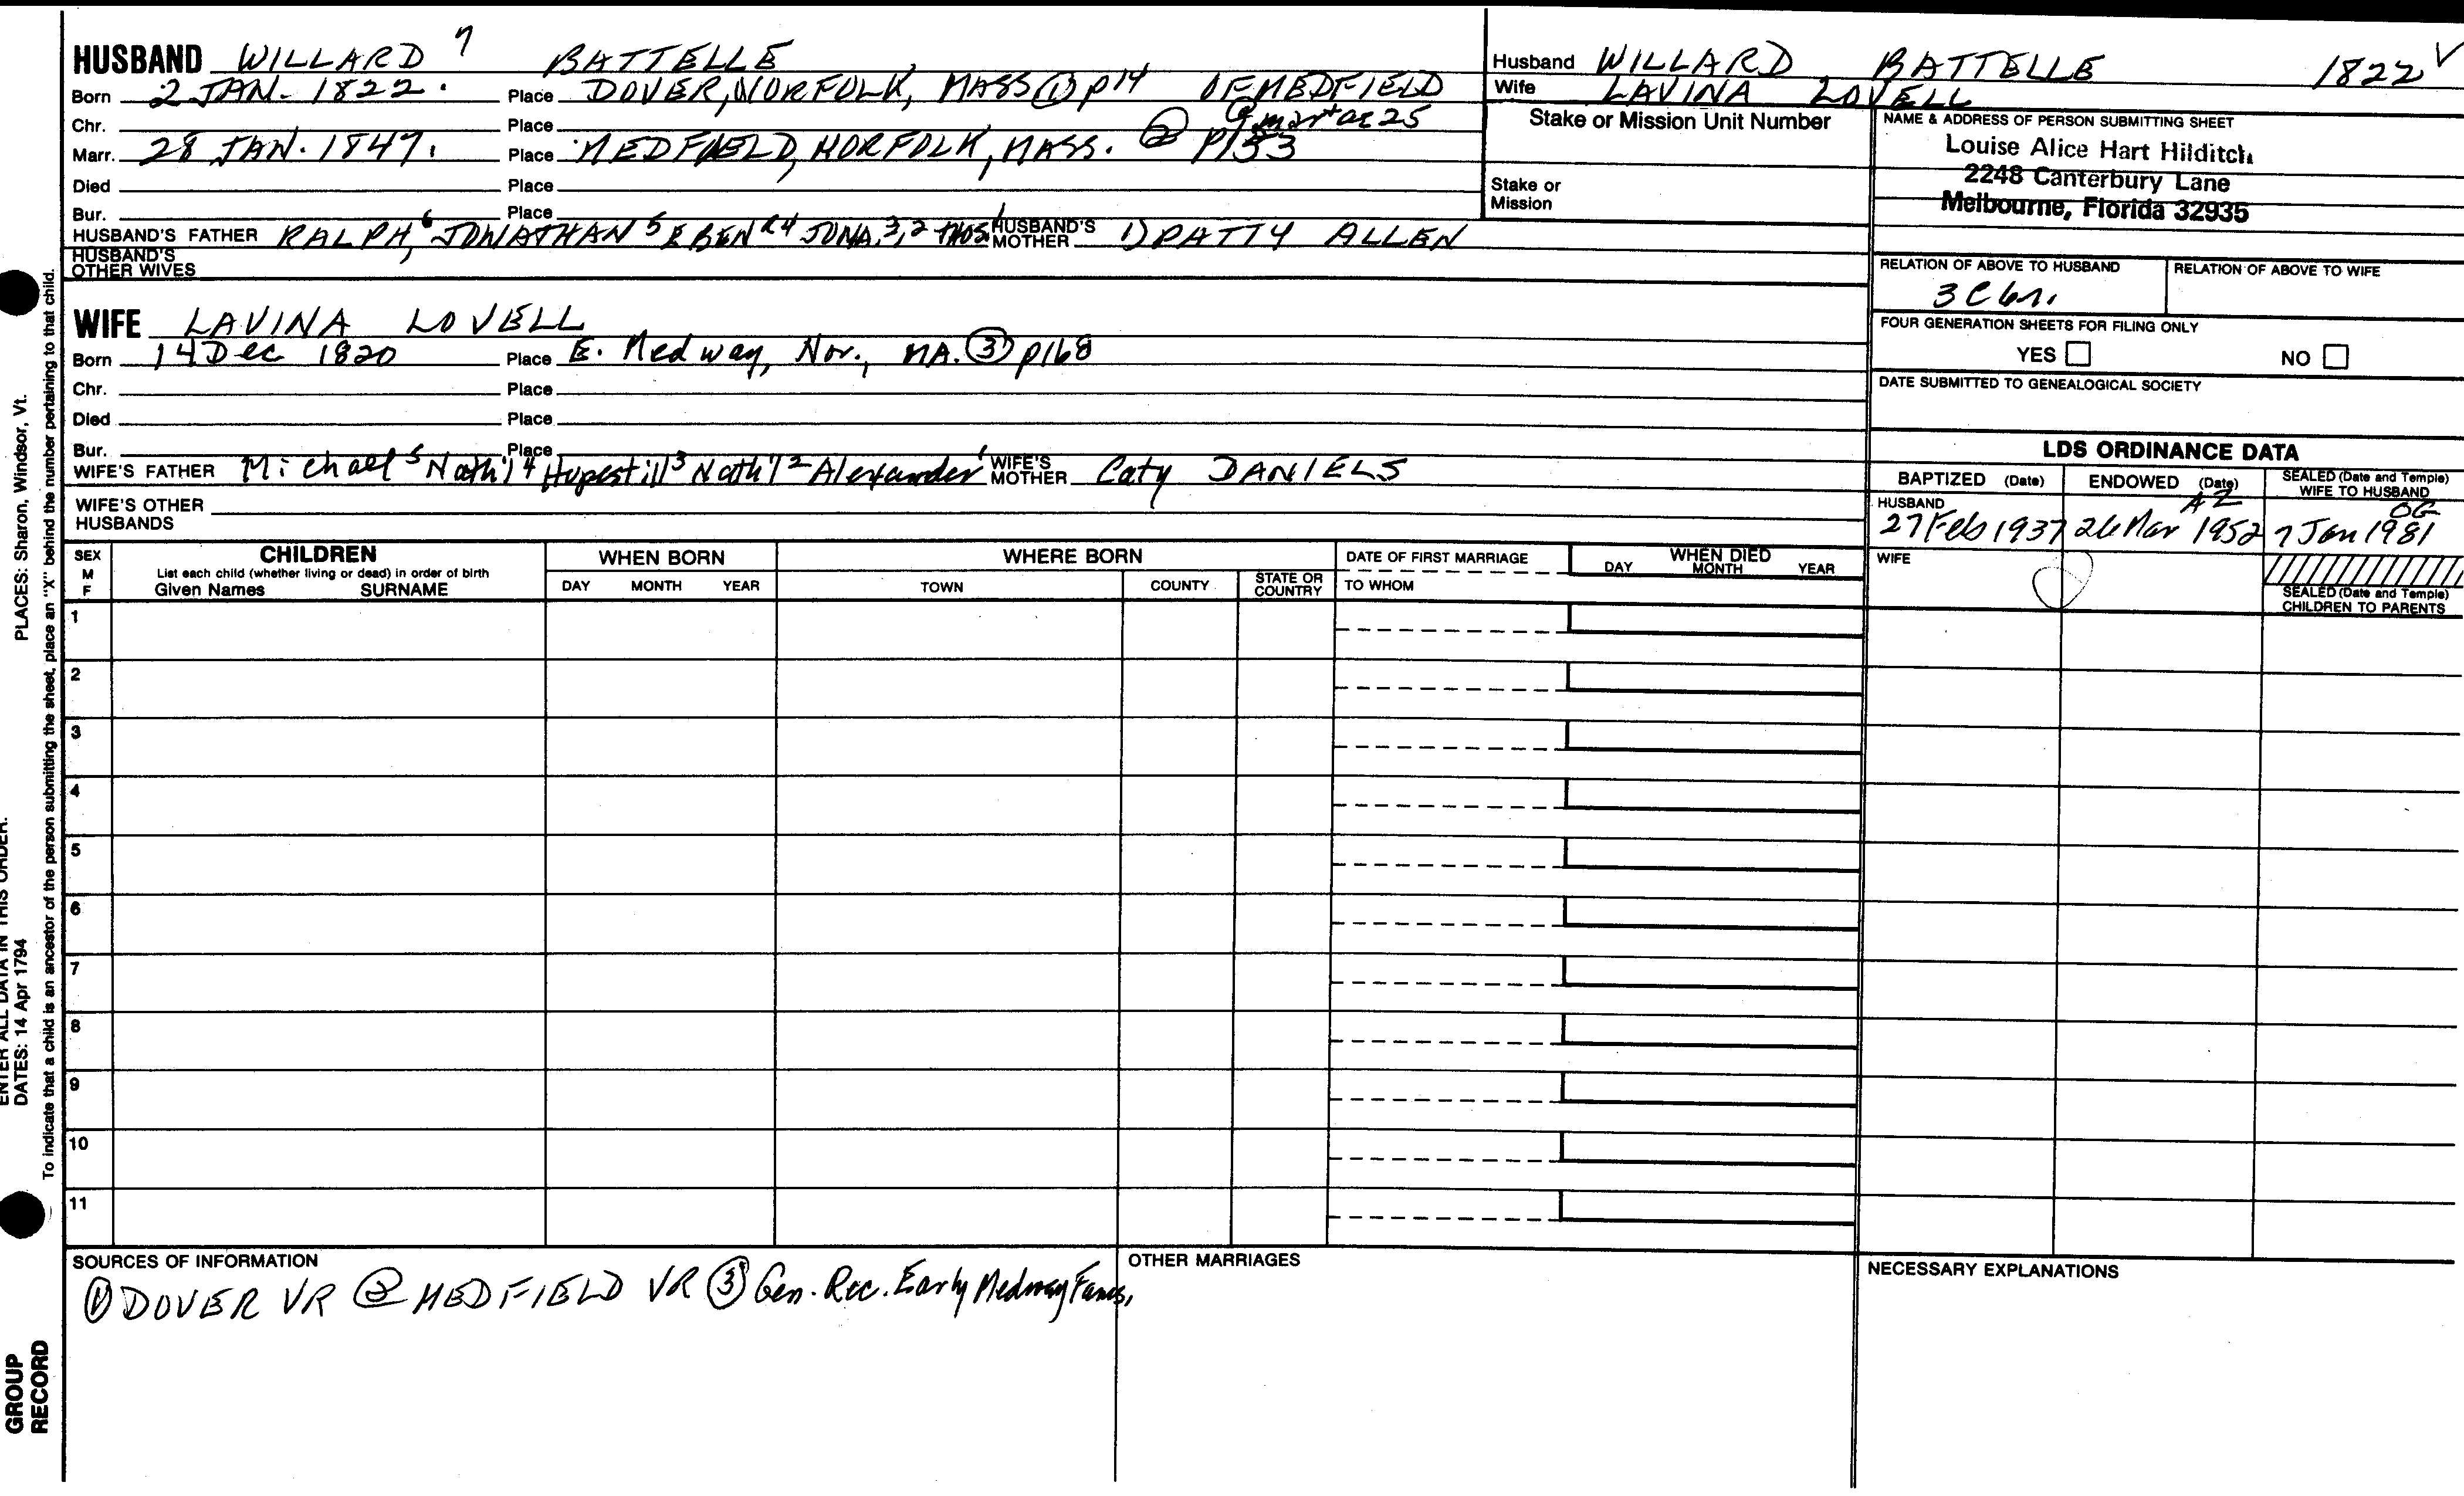 HUSBAND WILLARD 7 BATTELLE
Born 2 JAN. 1822. Place DOVER, NORFOLK, MASS ① p14 OF MEDFIELD
Chr. Place mar at ae 25
Marr. 28 JAN. 1847. Place MEDFIELD, NORFOLK, MASS. ② p153
Died Place
Bur. Place
HUSBAND'S FATHER RALPH, 6 JONATHAN 5 EBENR 4 JONA. 3,2 THOS. 1 HUSBAND'S MOTHER 1) PATTY ALLEN
HUSBAND'S OTHER WIVES
Husband WILLARD BATTELLE 1822 V
Wife LAVINA LOVELL
Stake or Mission Unit Number
Stake or Mission
NAME & ADDRESS OF PERSON SUBMITTING SHEET
Louise Alice Hart Hilditch
2248 Canterbury Lane
Melbourne, Florida 32935
RELATION OF ABOVE TO HUSBAND RELATION OF ABOVE TO WIFE
FOUR GENERATION SHEETS FOR FILING ONLY
YES NO
DATE SUBMITTED TO GENEALOGICAL SOCIETY
WIFE LAVINA LOVELL
Born 14 Dec 1820 Place E. Medway, Nor., MA. ③ p168
Chr. Place
Died Place
Bur. Place
WIFE'S FATHER Michael 5 Nath'l 4 Hopestill 3 Nath'l 2 Alexander 1 WIFE'S MOTHER Caty DANIELS
WIFE'S OTHER HUSBANDS
LDS ORDINANCE DATA
BAPTIZED (Date) ENDOWED (Date) SEALED (Date and Temple) WIFE TO HUSBAND
HUSBAND AZ OG
27 Feb 1937 26 Mar 1952 7 Jan 1981
WIFE
SEALED (Date and Temple) CHILDREN TO PARENTS
SEX M F
CHILDREN
List each child (whether living or dead) in order of birth
Given Names SURNAME
WHEN BORN
DAY MONTH YEAR
WHERE BORN
TOWN COUNTY STATE OR COUNTRY
DATE OF FIRST MARRIAGE
TO WHOM
WHEN DIED
DAY MONTH YEAR
1
2
3
4
5
6
7
8
9
10
11
SOURCES OF INFORMATION
① DOVER VR ② MEDFIELD VR ③ Gen. Rec. Early Medway Fams,
OTHER MARRIAGES
NECESSARY EXPLANATIONS
PLACES: Sharon, Windsor, Vt.
ENTER ALL DATA IN THIS ORDER.
DATES: 14 Apr 1794
To indicate that a child is an ancestor of the person submitting the sheet, place an "X" behind the number pertaining to that child.
GROUP
RECORD